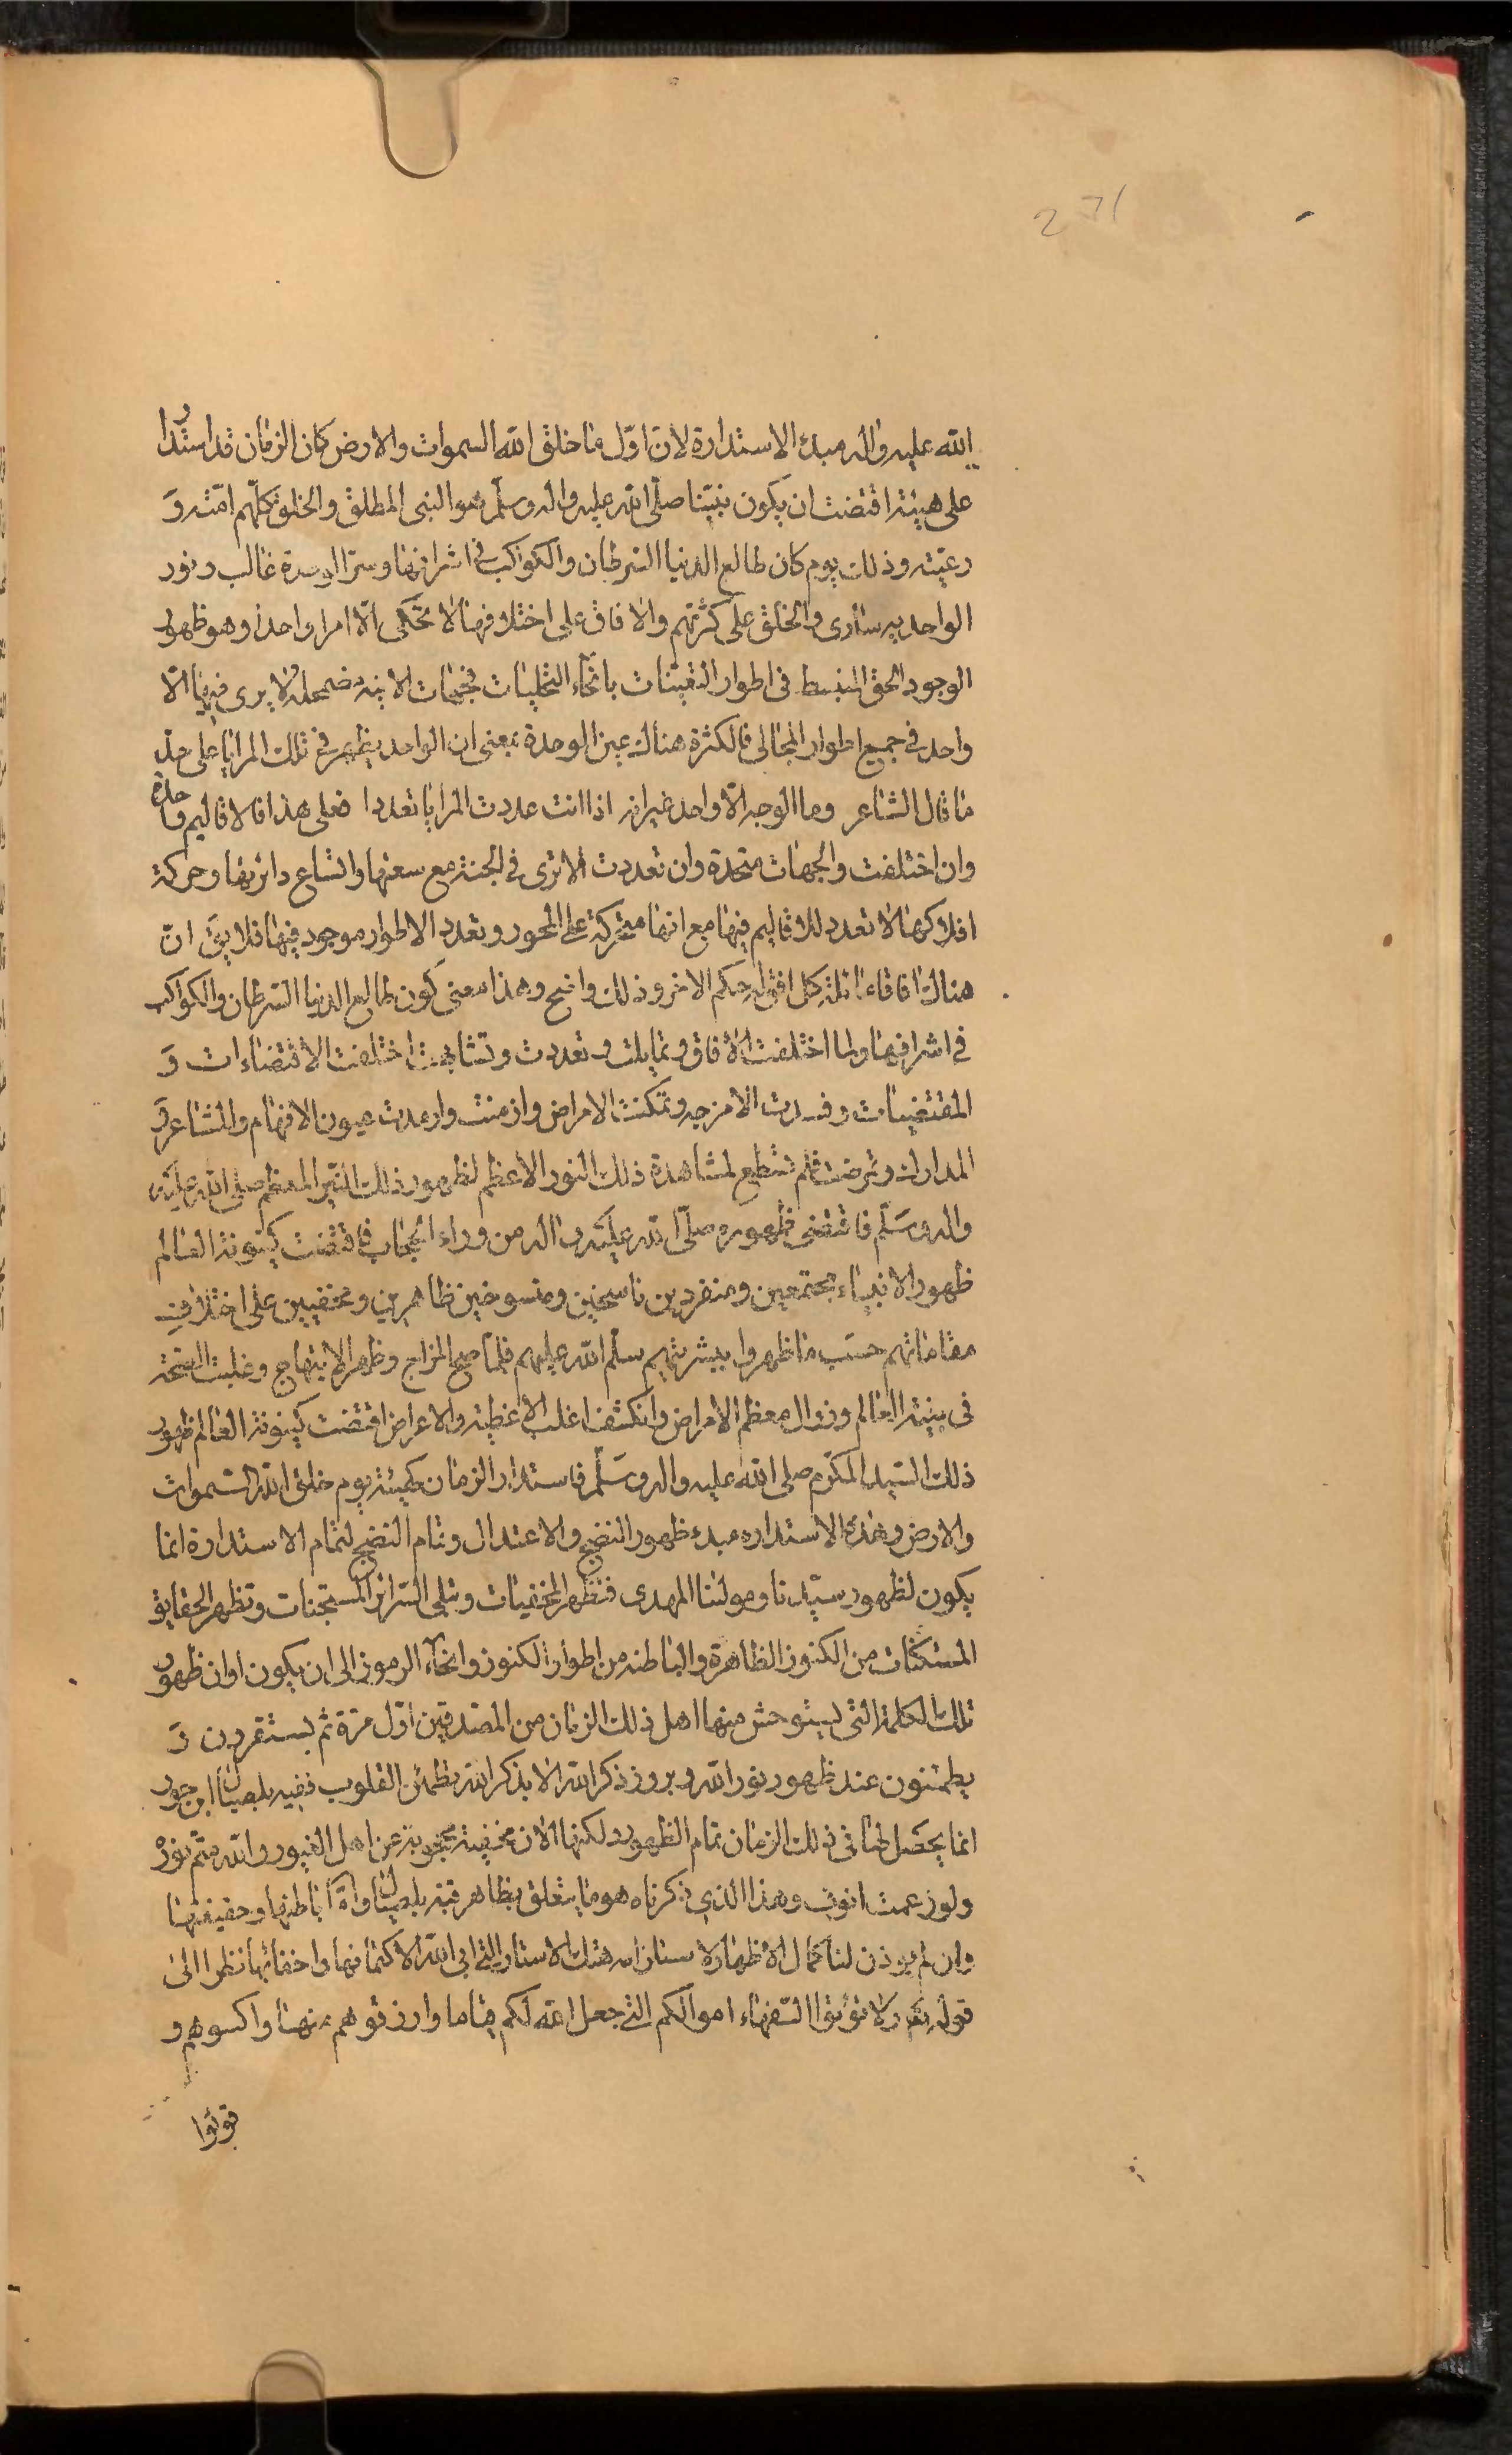 271
الله عليه واله مبدء الاستدارة لان اوّل ما خلق الله السموات والارض كان الزمان قد استدار
على هيئة اقتضت ان يكون نبيّنا صلّى الله عليه واله وسلّم هو النبى المطلق والخلق كلّهم امّته وَ
رعيّته وذلك يوم كان طالع الدنيا السرطان والكواكب فى اشرافها وسرّ الوحدة غالب ونور
الواحد به سارى والخلق على كثرتهم والافاق على اختلافها لا تحكى الّا امرا واحدا وهو ظهور
الوجود الحق المنبسط فى اطوار التعيّنات بانحاء التجليات فجهات الانيّه مضمحلة ولا يرى فيها الّا
واحد فى جميع اطوار المجالى فالكثرة هناك عين الوحدة بمعنى ان الواحد يظهر فى تلك المرايا على حدّ
ما قال الشاعر وما الوجه الّا واحد غير انه اذا انت عددت المرايا تعددا فعلى هذا فالاقاليم واحدة
وان اختلفت والجهات متحدة وان تعددت الا ترى فى الجنة مع سعتها واتساع دائرتها وحركة
افلاكها لا تعدد للاقاليم فيها مع انها متحركة على المحور وتعدد الاطوار موجود فيها فلا يقَ انّ
هناك افاقاء ثلثة كل افق له حكم الاخر وذلك واضح وهذا معنى كون طالع الدنيا السرطان والكواكب
فى اشرافها ولما اختلفت الأفاق وتمايلت وتعددت وتشابهت اختلفت الاقتضاءات وَ
المقتضيات وفسدت الامزجه وتمكنت الامراض وازمنت وارمدت عيون الافهام والمشاعر وَ
المدارك ومرضت فلم تستطع لمشاهدة ذلك النور الاعظم لظهور ذلك النيّر المعظم صلى الله عليه
واله وسَلّم فاقتضى ظهوره صلّى الله عليَه واله من وراء الحجاب فاقتضت كينونة العالم
ظهور الانبياء مجتمعين ومنفردين ناسخين ومنسوخين ظاهرين ومختفيين على اختلافِ
مقاماتهم حسَب ما ظهروا ببشريتهم سلّم الله عليهم فلمّا صح المزاج وظهر الابتهاج وغلبت الصحّة
فى بنية العالم وزال معظم الامراض وانكشف اغلب الاغطية والاعراض اقتضت كينونة العالم ظهور
ذلك السّيد المكرّم صلى الله عليه واله وسَلّم فاستدار الزمان كهيئة يوم خلق الله السّموات
والارض وهذه الاستداره مبدء ظهور النضج والاعتدال وتمام النضج لتمام الاستدارة انما
يكون لظهور سيّدنا ومولنا المهدى فتظهر المخفيات وتبلى السّرائر المستجنات وتظهر الحقايق
المستكنات من الكنوز الظاهرة والباطنه من اطوار الكنوز وانحاء الرموز الى ان يكون اوان ظهور
تلك الكلمة التى يستوحش منها اهل ذلك الزمان من المصدقين اوّل مرّة ثم يستقرون وَ
يطمئنون عند ظهور نور الله وبروز ذكر الله الا بذكر الله تطمئن القلوب
انما يحصَل لها فى ذلك الزمان تمام الظهور ولكنها الان مخفية محجوبة عن اهل الغيور والله متم نوره
ولو زعمت انوف وهذا الذى ذكرناه هو ما يتعلق بظاهر وامّا باطنها وحقيقتها
وان لم يوذن لنا كمال الأظهار لاستلزامه هتك الاستار التى ابى الله الا كتمانها واخفائها نظرا الى
قوله تعَ ولا تؤتوا السّفهاء اموالكم التى جعل الله لكم قياما وارزقوهم منها واكسوهم و
قولوا